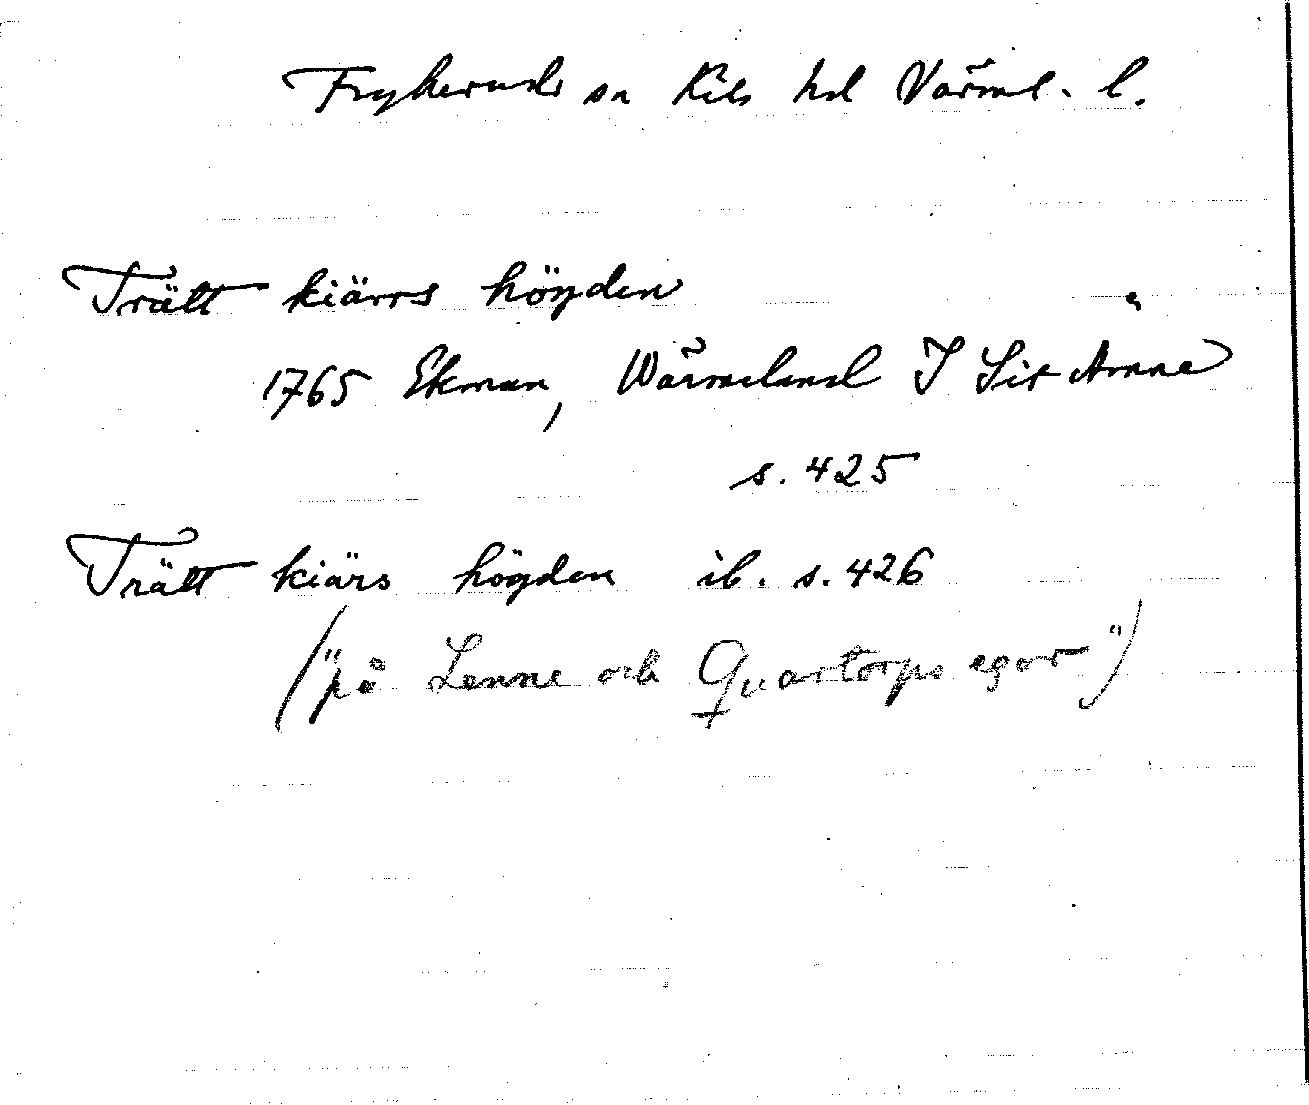 Frykerud sn Kils hd Värml. l.
Trätt kiärrs högden
1765 Ekman, Wärmeland I Sit Ämne
s. 425
Trätt kiärs högden ib. s. 426
("på Lenne och Quartorps egor")